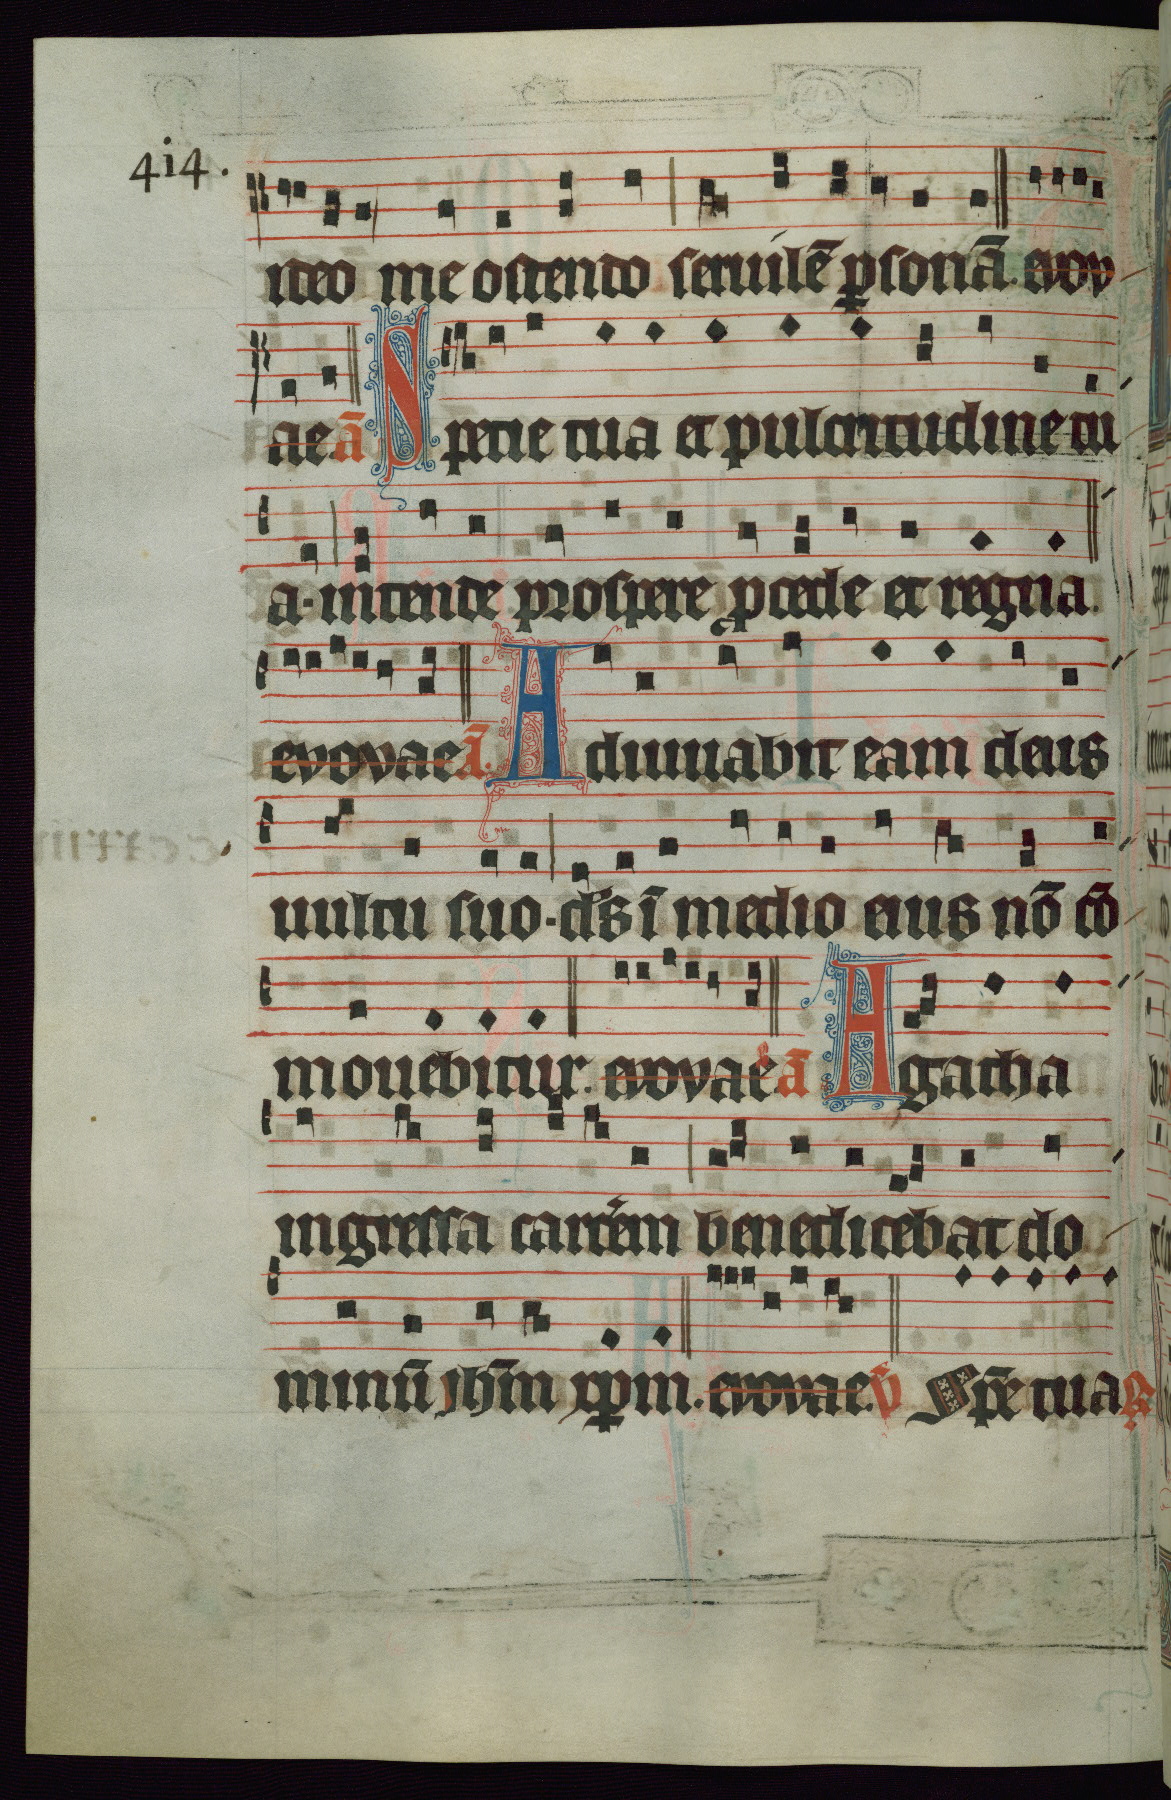 4i4.
ideo me ostendo seruilē ꝑsonā. euou
ae ā Specie tua et pulcritudine tu
a. intende prospere ꝓcede et regna
euouae ā. Adiuuabit eam deus
uultu suo. ds̄ ī medio eius nō cō
mouebitur. euouae ā Agatha
ingressa carcēm benedicebat do
minū jhm̄ xp̄m. euouae. v̄ Spē tua ℟